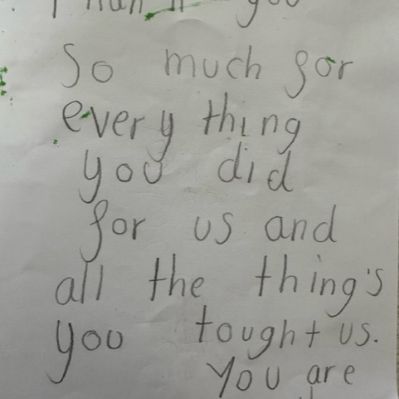 you
So much for
every thing
you did
for us and
all the thing's
you tought us.
You are